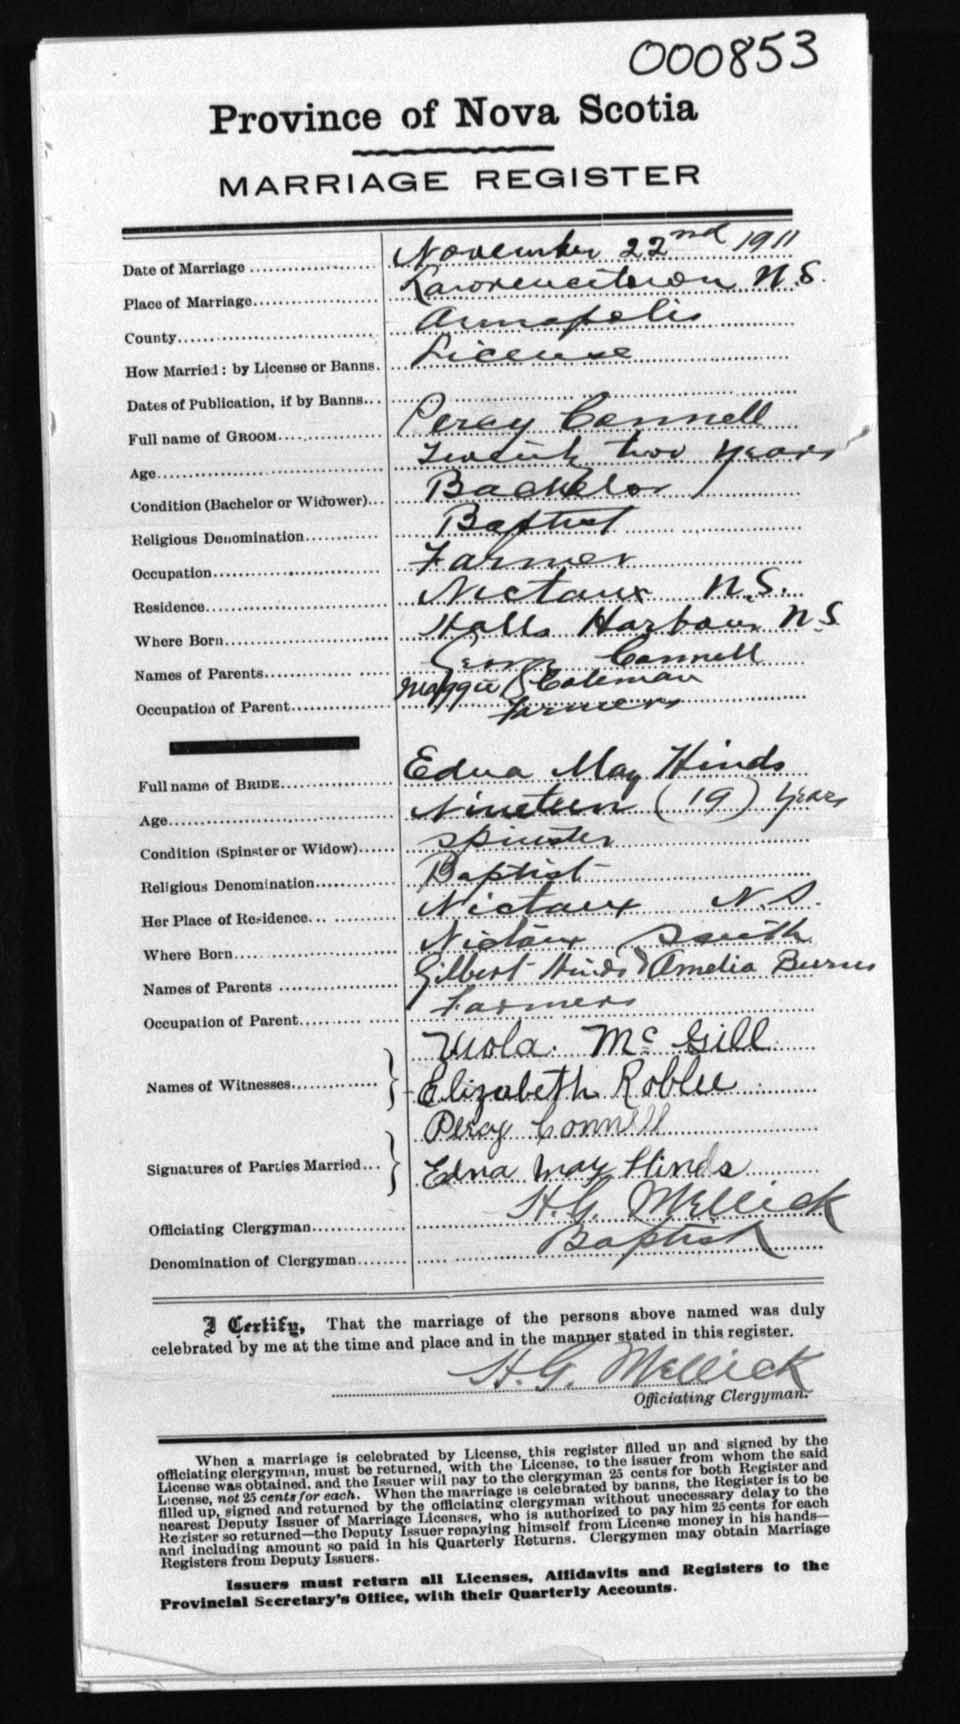 000853
Province of Nova Scotia
MARRIAGE REGISTER
Date of Marriage November 22nd 1911
Place of Marriage Lawrencetown N.S.
County Annapolis
How Married: by License or Banns. License
Dates of Publication, if by Banns
Full name of GROOM Percy Connell
Age Twenty two years
Condition (Bachelor or Widower) Bachelor
Religious Denomination Baptist
Occupation Farmer
Residence Nictaux N.S.
Where Born Halls Harbour N.S.
Names of Parents George Connell
Maggie Coleman
Occupation of Parent Farmers
Full name of BRIDE Edna May Hinds
Age Nineteen (19) years
Condition (Spinster or Widow) Spinster
Religious Denomination Baptist
Her Place of Residence Nictaux N.S.
Where Born Nictaux South
Names of Parents Gilbert Hinds & Amelia Burns
Occupation of Parent Farmers
Viola McGill
Names of Witnesses Elizabeth Roblee
Percy Connell
Signatures of Parties Married Edna May Hinds
Officiating Clergyman H.G. Mellick
Denomination of Clergyman Baptist
I Certify, That the marriage of the persons above named was duly
celebrated by me at the time and place and in the manner stated in this register.
H.G. Mellick
Officiating Clergyman.
When a marriage is celebrated by License, this register filled up and signed by the
officiating clergyman, must be returned, with the License, to the issuer from whom the said
License was obtained, and the Issuer will pay to the clergyman 25 cents for both Register and
License, not 25 cents for each. When the marriage is celebrated by banns, the Register is to be
filled up, signed and returned by the officiating clergyman without unnecessary delay to the
nearest Deputy Issuer of Marriage Licenses, who is authorized to pay him 25 cents for each
Register so returned—the Deputy Issuer repaying himself from License money in his hands—
and including amount so paid in his Quarterly Returns. Clergymen may obtain Marriage
Registers from Deputy Issuers.
Issuers must return all Licenses, Affidavits and Registers to the
Provincial Secretary's Office, with their Quarterly Accounts.